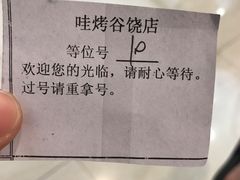 哇烤谷饶店
等位号 10
欢迎您的光临，请耐心等待。
过号请重拿号。